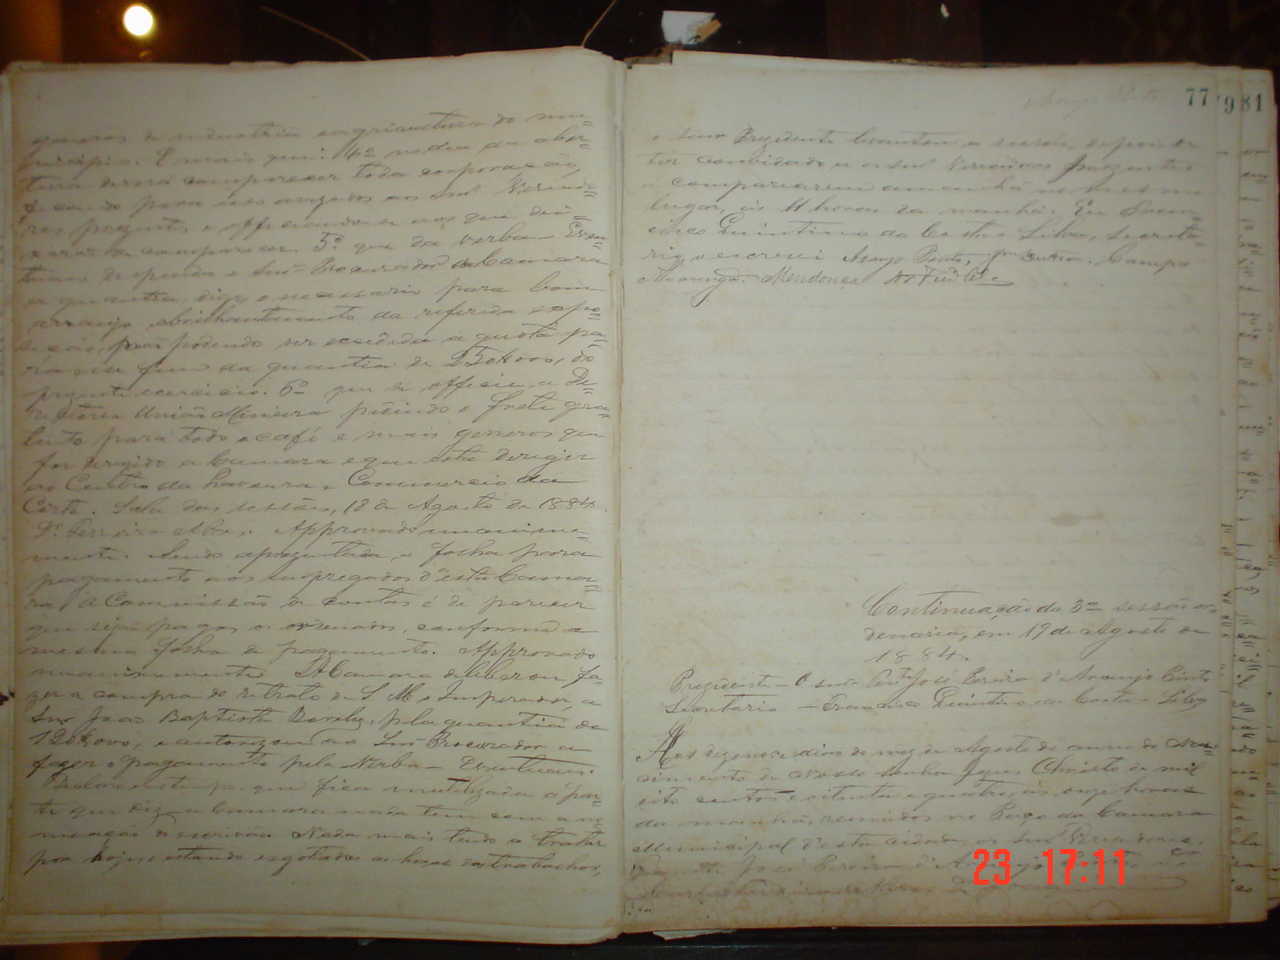 generos de industria e agricultura do mu=
nicipio. E mais que: 4º no dia da aber=
tura deverá comparecer toda corporação,
ficando para isso avizados os Snrs Vereado=
res prezentes e officiando-se aos que dei=
xarão de comparecer. 5º que da verba - Even=
tuaes despenda o Snr Procurador da Camara
a quantia, digo, o necessario para bom
arranjo, abrilhantamento da referida expo=
sição, não podendo ser excedida a quota pa=
ra esse fim da quantia de
prezente exercicio. 6º que se officie a Di=
rectoria União Mineira pedindo o frete gra=
tuito para todo o café e mais generos que
for dirigido a Camara e que esta dirigir
ao Centro da Lavoura e Commercio da
Côrte. Sala das sessões, 18 de Agosto de 1884.
Dr Ferreira Alves. Approvado unanime=
mente. Sendo aprezentada a folha para
pagamento aos empregados d'esta Cama=
ra a Commissão de contas é de parecer
que sejão pagos os ordenados, conforme a
mesma folha de pagamento. Approvado
unanimemente. A Camara deliberou fa=
zer a compra do retrato de S. M. o Imperador, a
Snr João Baptista pela quantia de
120$000, e autorizou ao Snr Procurador a
fazer o pagamento pela Verba - Eventuaes.
Declaro em tempo, que fica inutilizada a par=
te que diz a Camara nada tem com a no=
meação do escrivão. Nada mais tendo a tratar
por hoje, e estando esgotadas as horas dos trabalhos,
Araujo Pinto
77
9
81
o Snr Prezidente levantou a sessão, depois de
ter convidado a os Snrs Vereadores prezentes
a comparecerem amanhã no mesmo
lugar, ás 11 horas da manhã. Eu Fran=
cisco Quintino da Costa e Silva, Secreta=
rio, o escrevi Araujo Pinto, Campos
Mendonça
Continuação da 3ª sessão or=
denaria, em 19 de Agosto de
1884.
Prezidente - O Snr Cente José Pereira d'Araujo Pinto
Secretario - Francisco Quintino da Costa e Silva
Aos dezenove dias do mez de Agosto do anno do Nas=
cimento de Nosso Senhor Jezus Christo de mil
oito centos e oitenta e quatro, ás onze horas
da manhã, reunidos no Paço da Camara
Municipal d'esta cidade, os Snrs Vereadores,
José Pereira d'Araujo
23 17:11